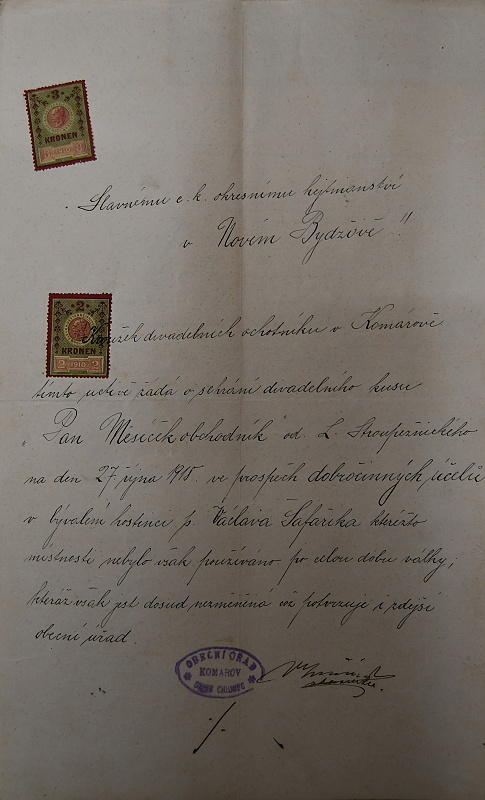 3
KRONEN
Slavnému c. k. okresnímu hejtmanství
v Novém Bydžově!!
2
KRONEN
2 1910 2
Kroužek divadelních ochotníku v Komárově
tímto uctivě žádá o sehrání divadelního kusu
„Pan Měsíček obchodník" od L. Stroupežnického
na den 27 října 1918. ve prospěch dobročinných účelů
v bývalém hostinci p. Václava Šafaříka kterěžto
mistnosti nebylo však používáno po celou dobu války;
kteráž však jest dosud nezměněná což potvrzuje i zdejší
obecní úřad.
OBECNÍ ÚŘAD
KOMAROV
OKRES CHLUMEC
starosta.